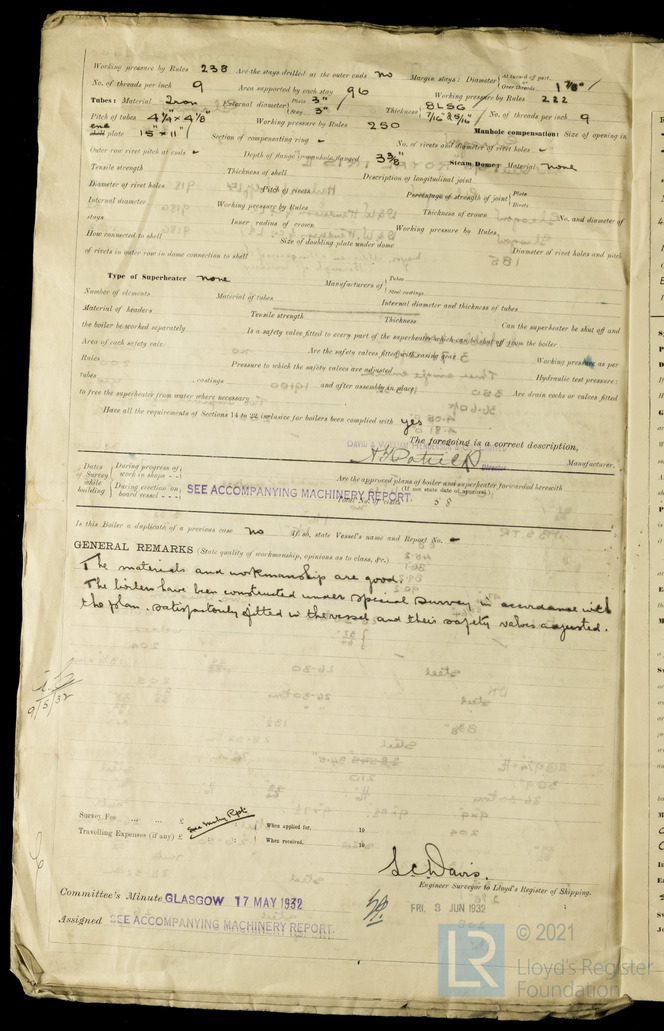 Working pressure by Rules 238 Are the stays drilled at the outer ends no Margin stays: Diameter { At turned off part, or Over threads 1 7/8" /
No. of threads per inch 9 Area supported by each stay 96 Working pressure by Rules 222
Tubes: Material Iron External diameter { Plain 3" Stay 3" / Thickness { 8 LSG 7/16" & 5/16" / No. of threads per inch 9
Pitch of tubes 4 1/4" x 4 1/8" Working pressure by Rules 250 Manhole compensation: Size of opening in
end shell plate 15" x 11" Section of compensating ring - No. of rivets and diameter of rivet holes -
Outer row rivet pitch at ends - Depth of flange if manhole flanged 3 3/8" Steam Dome: Material none
Tensile strength Thickness of shell Description of longitudinal joint
Diameter of rivet holes Pitch of rivets Percentage of strength of joint { Plate Rivets
Internal diameter Working pressure by Rules Thickness of crown No. and diameter of
stays Inner radius of crown Working pressure by Rules
How connected to shell Size of doubling plate under dome Diameter of rivet holes and pitch
of rivets in outer row in dome connection to shell
Type of Superheater none Manufacturers of { Tubes Steel castings
Number of elements Material of tubes Internal diameter and thickness of tubes
Material of headers Tensile strength Thickness Can the superheater be shut off and
the boiler be worked separately Is a safety valve fitted to every part of the superheater which can be shut off from the boiler
Area of each safety valve Are the safety valves fitted with easing gear Working pressure as per
Rules Pressure to which the safety valves are adjusted Hydraulic test pressure:
tubes , castings and after assembly in place Are drain cocks or valves fitted
to free the superheater from water where necessary
Have all the requirements of Sections 14 to 22 inclusive for boilers been complied with yes
The foregoing is a correct description,
DAVID & WILLIAM HENDERSON & CO. LIMITED.
Director Manufacturer.
Dates of Survey while building { During progress of work in shops - - During erection on board vessel - - -
SEE ACCOMPANYING MACHINERY REPORT.
Are the approved plans of boiler and superheater forwarded herewith (If not state date of approval.)
Total No. of visits
Is this Boiler a duplicate of a previous case no If so, state Vessel's name and Report No. -
GENERAL REMARKS (State quality of workmanship, opinions as to class, &c.)
The materials and workmanship are good.
The boilers have been constructed under special survey in accordance with
the plan, satisfactorily fitted in the vessel and their safety valves adjusted.
9/5/32
Survey Fee ... ... £ See Mchy Rpt. When applied for, 19
Travelling Expenses (if any) £ When received, 19
S.C. Davis.
Engineer Surveyor to Lloyd's Register of Shipping.
Committee's Minute GLASGOW 17 MAY 1932
FRI. 3 JUN 1932
Assigned SEE ACCOMPANYING MACHINERY REPORT.
LR © 2021
Lloyd's Register
Foundation